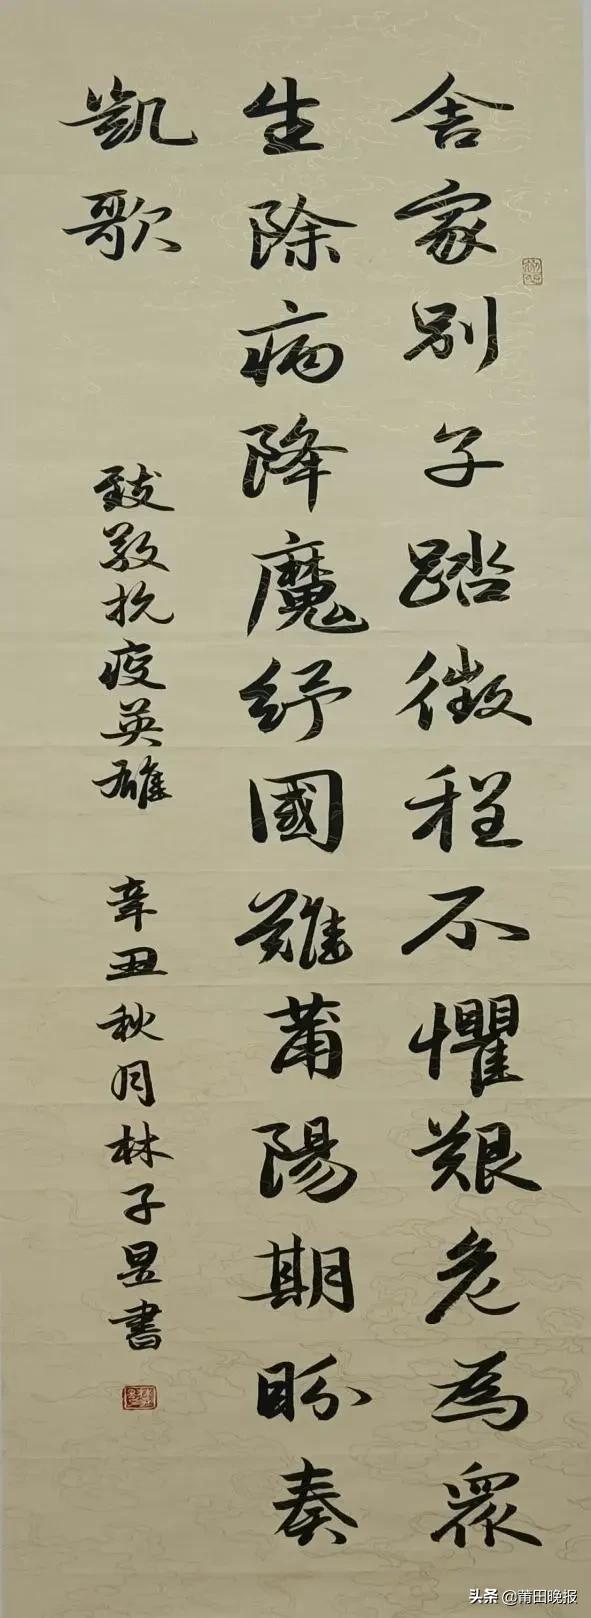 舍家別子踏徵程不懼艱危為眾
生除病降魔紓國難莆陽期盼奏
凱歌
致敬抗疫英雄 辛丑秋月林子昱書
头条 @莆田晚报